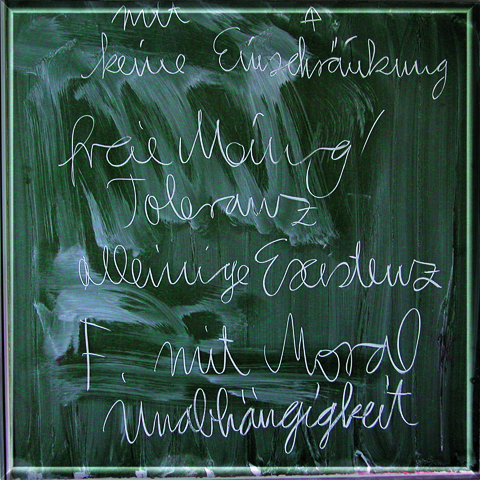 mit
keine Einschränkung
freie Meinung
Toleranz
alleinige Existenz
F. mit Moral
Unabhängigkeit